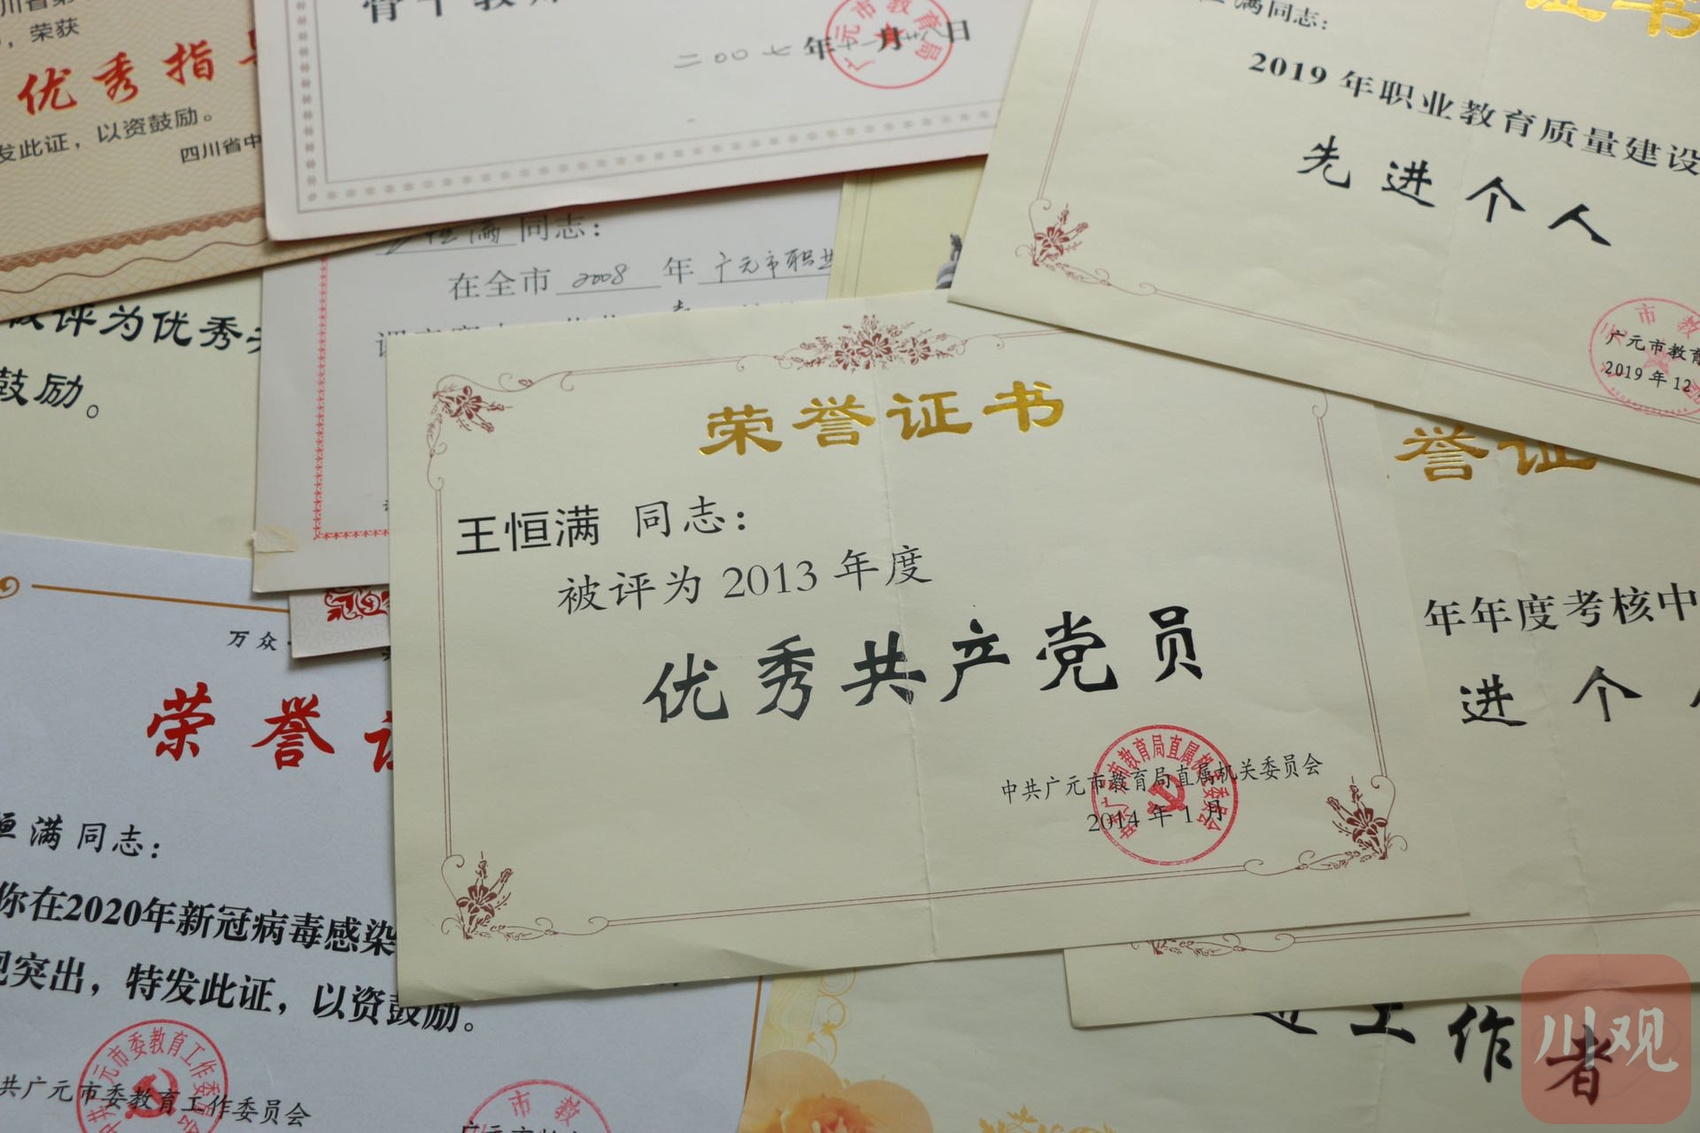 荣获
优秀指
发此证，以资鼓励。
四川省中
二〇〇七年十一月廿八日
广元市教育局
满同志：
2019年职业教育质量建设
先进个人
广元市教育
2019年12
恒满同志：
在全市2008年广元市职业
被评为优秀
鼓励。
荣誉证书
王恒满 同志：
被评为2013年度
优秀共产党员
中共广元市教育局直属机关委员会
2014年1月
誉证
年年度考核中
进个
万众
荣誉证
恒满同志：
你在2020年新冠病毒感染
现突出，特发此证，以资鼓励。
共广元市委教育工作委员会
市教
进工作者
川观